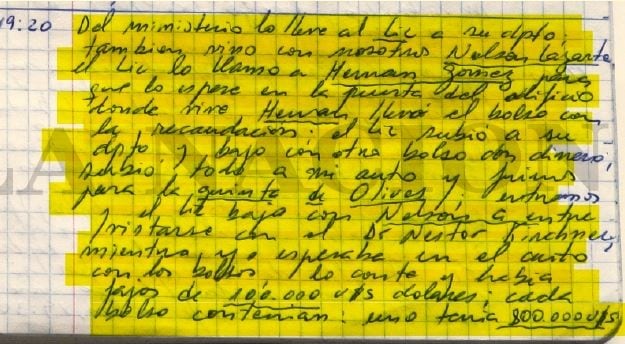 19:20 Del ministerio lo lleve al Lic a su dpto.
tambien vino con nosotros Nelson Lazarte,
el Lic lo llamo a Hernan Gomez para
que lo espere en la puerta del edificio
donde vive Hernan llevó el bolso con
la recaudación; el Lic subió a su
dpto y bajo con otro bolso con dinero,
subió todo a mi auto y fuimos
para la quinta de Olivos; entramos
y el Lic bajo con Nelson a entre
vistarse con el Dr Nestor Kirchner,
mientras yo esperaba en el auto
con los bolsos, lo conte y habia
fajos de 100.000 U$S dolares; cada
bolso contenian: uno tenia 800.000 U$S,
LA NACION